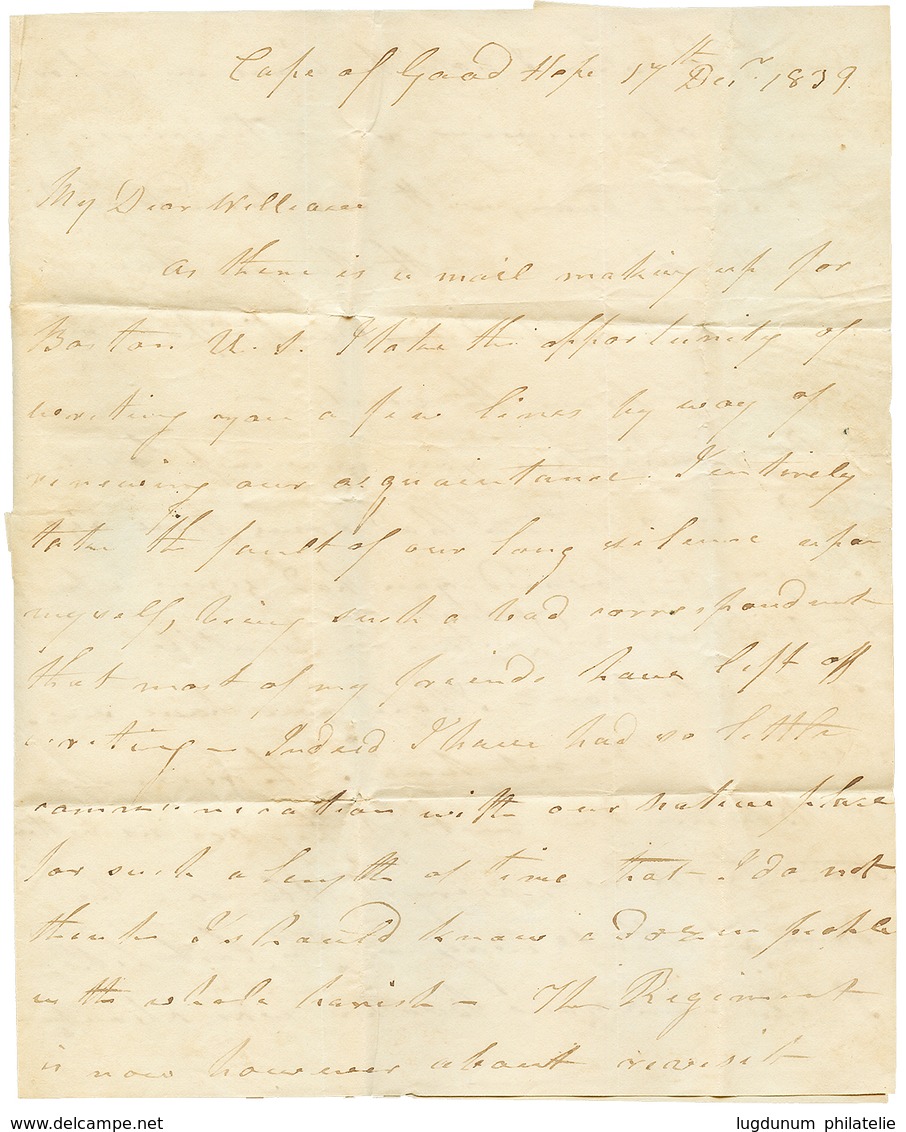 Cape of Good Hope 17th Decr 1839.
My Dear William
As there is a mail making up for
Boston U. S. I take the opportunity of
writing you a few lines by way of
renewing our acquaintance. I intirely
take the fault of our long silence upon
myself, being such a bad correspondent
that most of my freinds have left off
writing – Indeed I have had so little
communication with our native place
for such a length of time that I do not
think I should know a dozen people
in the whole parish – The Regiment
is now however about revisit
www.delcampe.net
lugdunum philatelie